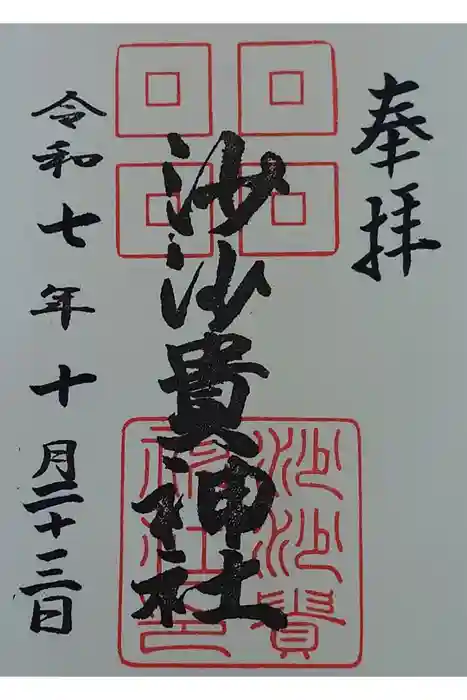 奉拝
沙沙貴神社
沙沙貴
神社印
令和七年十月二十三日